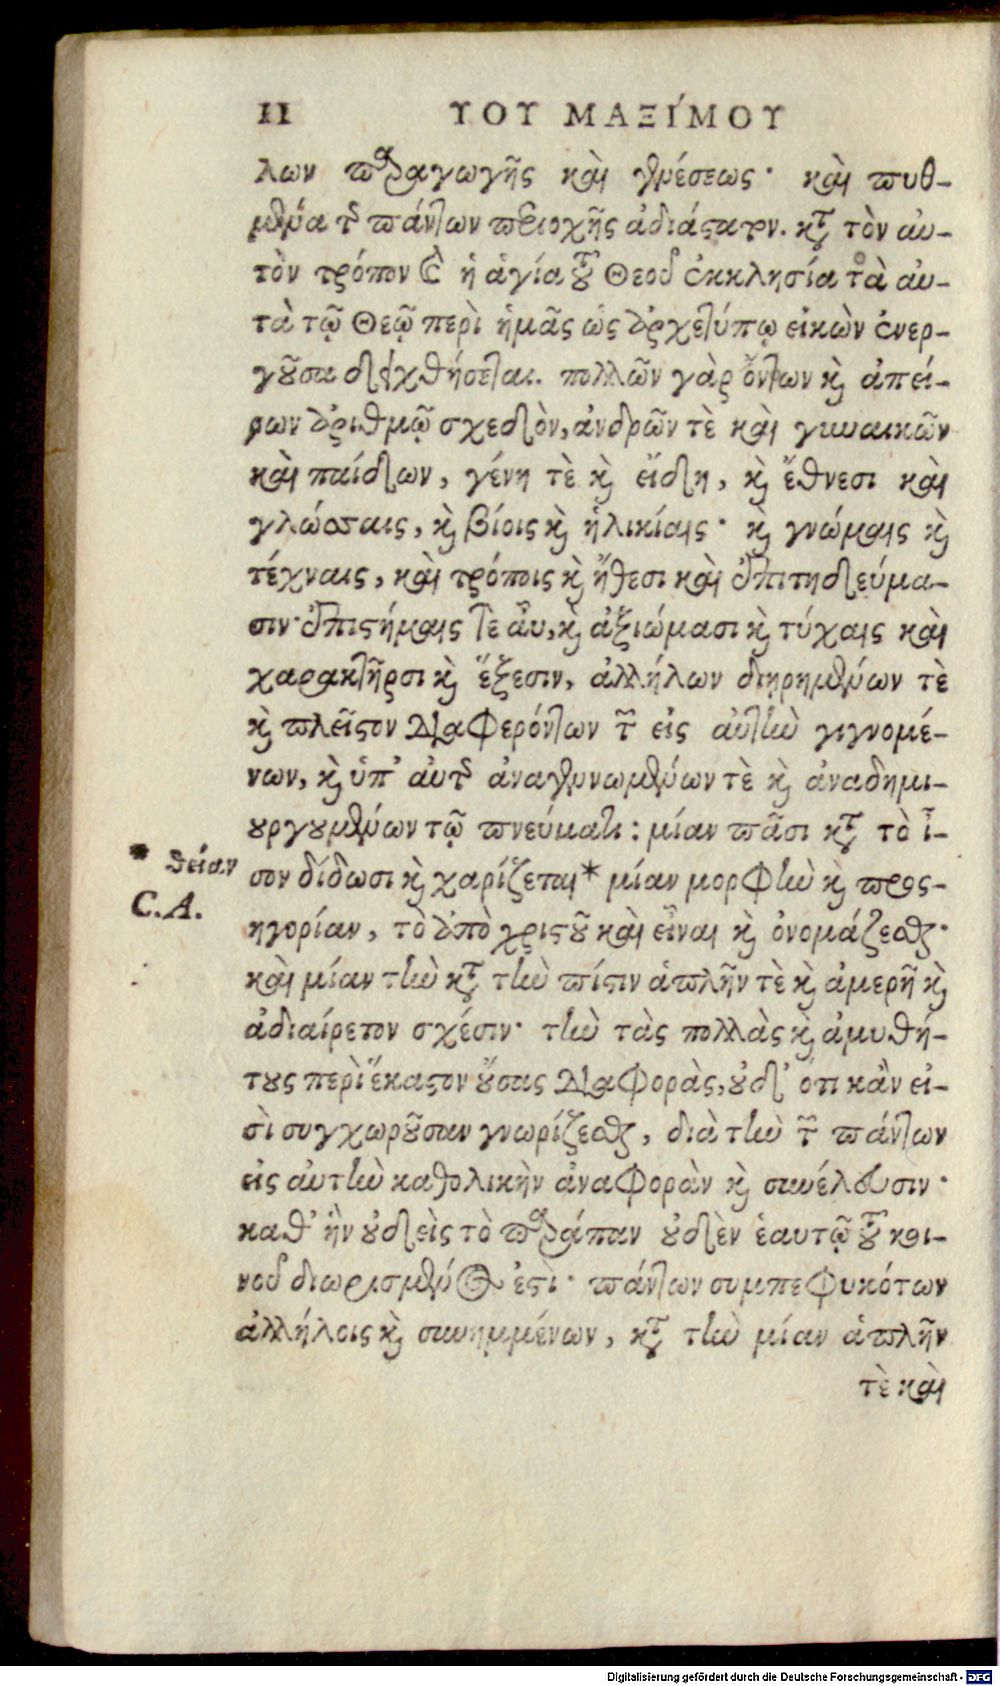 11 ΤΟΥ ΜΑΞΊΜΟΥ
λων παραγωγῆς καὶ γενέσεως· καὶ πυθ-
μένα τῆς πάντων περιοχῆς ἀδιάστατον. κατὰ τὸν αὐ-
τὸν τρόπον καὶ ἡ ἁγία τοῦ Θεοῦ ἐκκλησία τὰ αὐ-
τὰ τῷ Θεῷ περὶ ἡμᾶς ὡς ἀρχετύπῳ εἰκὼν ἐνερ-
γοῦσα δειχθήσεται. πολλῶν γὰρ ὄντων καὶ ἀπεί-
ρων ἀριθμῷ σχεδὸν, ἀνδρῶν τὲ καὶ γυναικῶν
καὶ παίδων, γένη τὲ καὶ εἴδη, καὶ ἔθνεσι καὶ
γλώσσαις, καὶ βίοις καὶ ἡλικίαις· καὶ γνώμαις καὶ
τέχναις, καὶ τρόποις καὶ ἤθεσι καὶ ἐπιτηδεύμα-
σιν· ἐπιστήμαις τὲ αὖ, καὶ ἀξιώμασι καὶ τύχαις καὶ
χαρακτῆρσι καὶ ἕξεσιν, ἀλλήλων διῃρημένων τὲ
καὶ πλεῖστον διαφερόντων τῶν εἰς αὐτὴν γιγνομέ-
νων, καὶ ὑπ' αὐτῆς ἀναγεννωμένων τὲ καὶ ἀναδημι-
ουργουμένων τῷ πνεύματι: μίαν πᾶσι κατὰ τὸ ἴ-
* θείαν
C.A.
σον δίδωσι καὶ χαρίζεται* μίαν μορφὴν καὶ προσ-
ηγορίαν, τὸ ἀπὸ χριστοῦ καὶ εἶναι καὶ ὀνομάζεσθαι·
καὶ μίαν τὴν κατὰ τὴν πίστιν ἁπλῆν τὲ καὶ ἀμερῆ καὶ
ἀδιαίρετον σχέσιν· τὴν τὰς πολλὰς καὶ ἀμυθή-
τους περὶ ἕκαστον οὔσας διαφορὰς, οὐδ' ὅτι κἂν εἰ-
σὶ συγχωροῦσαν γνωρίζεσθαι, διὰ τὴν τῶν πάντων
εἰς αὐτὴν καθολικὴν ἀναφορὰν καὶ συνέλευσιν·
καθ' ἣν οὐδεὶς τὸ παράπαν οὐδὲν ἑαυτῷ τοῦ κοι-
νοῦ διωρισμένος ἐστὶ· πάντων συμπεφυκότων
ἀλλήλοις καὶ συνημμένων, κατὰ τὴν μίαν ἁπλῆν
τὲ καὶ
Digitalisierung gefördert durch die Deutsche Forschungsgemeinschaft - DFG